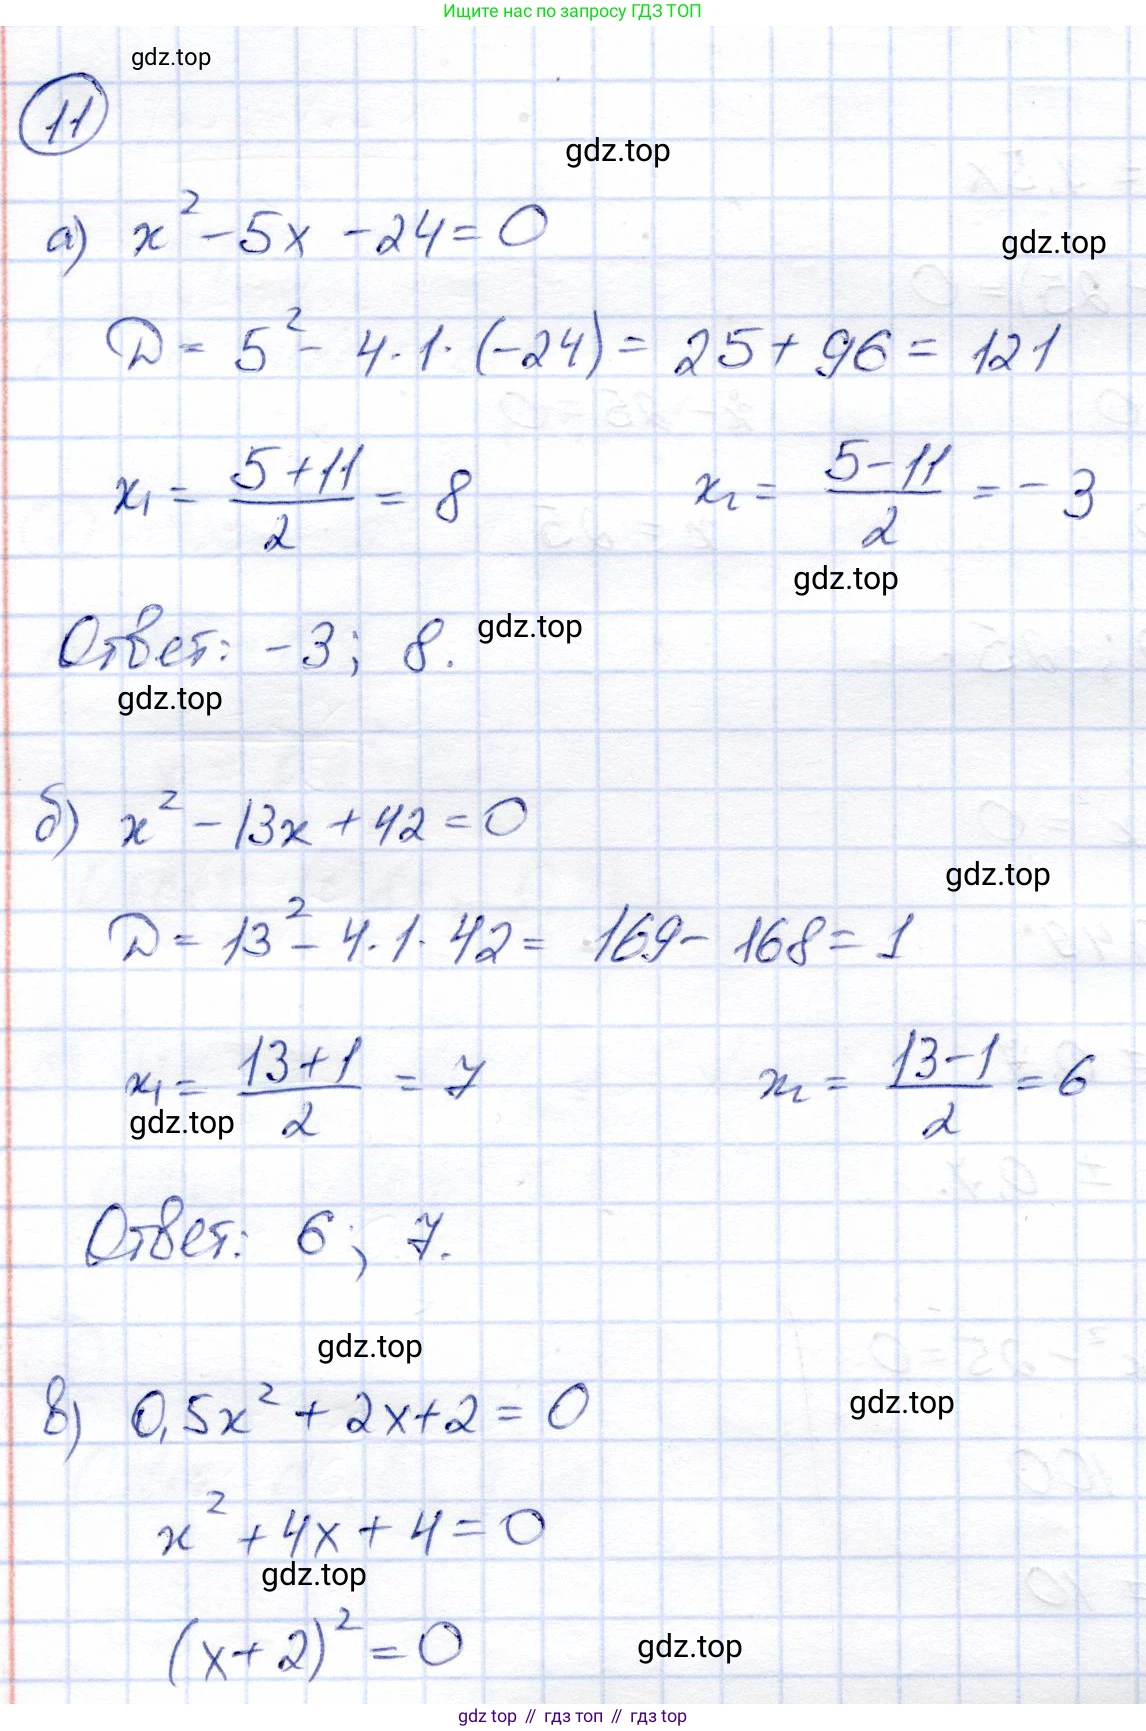 Ищите нас по запросу ГДЗ ТОП
gdz.top
11
gdz.top
а) x² - 5x - 24 = 0
gdz.top
D = 5² - 4·1·(-24) = 25 + 96 = 121
x₁ = (5+11)/2 = 8 x₂ = (5-11)/2 = -3
gdz.top
Ответ: -3; 8.
gdz.top
gdz.top
б) x² - 13x + 42 = 0
gdz.top
D = 13² - 4·1·42 = 169 - 168 = 1
x₁ = (13+1)/2 = 7 x₂ = (13-1)/2 = 6
gdz.top
Ответ: 6; 7.
gdz.top
в) 0,5x² + 2x + 2 = 0
gdz.top
x² + 4x + 4 = 0
gdz.top
(x+2)² = 0
gdz.top
gdz top // гдз топ // gdz top